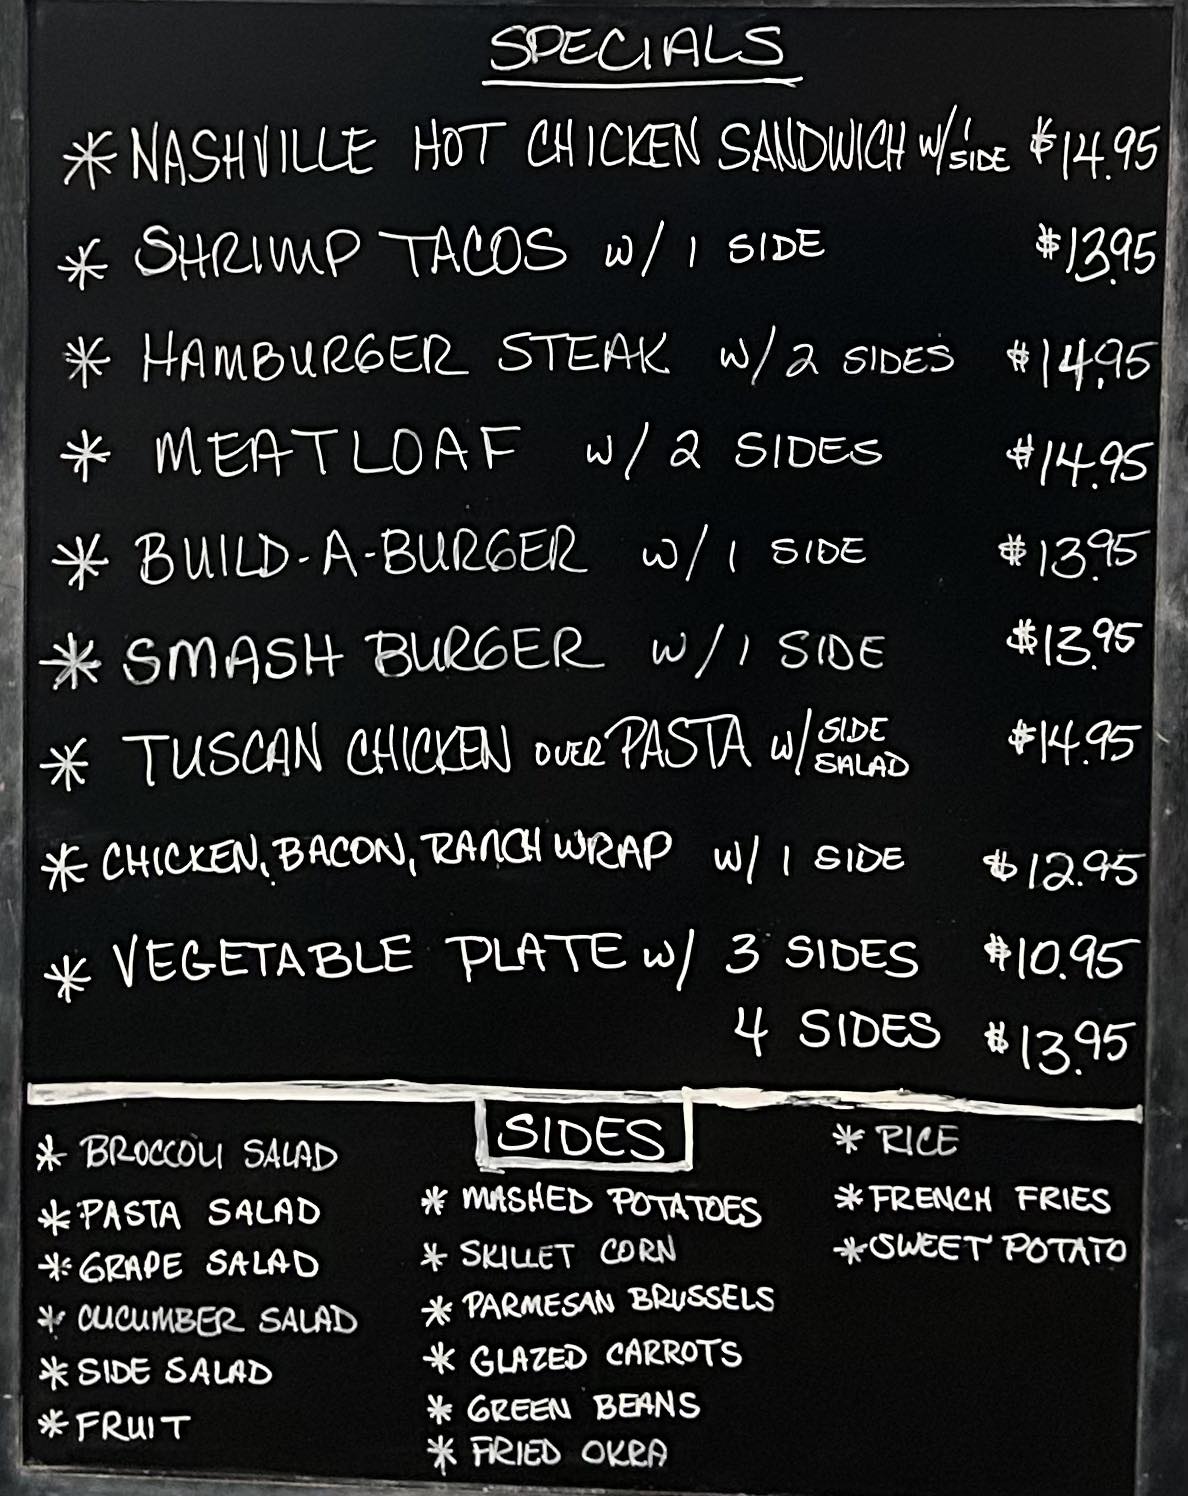 SPECIALS
* NASHVILLE HOT CHICKEN SANDWICH W/ 1 SIDE $14.95
* SHRIMP TACOS W/ 1 SIDE $13.95
* HAMBURGER STEAK W/ 2 SIDES $14.95
* MEATLOAF W/ 2 SIDES $14.95
* BUILD-A-BURGER W/ 1 SIDE $13.95
* SMASH BURGER W/ 1 SIDE $13.95
* TUSCAN CHICKEN OVER PASTA W/ SIDE SALAD $14.95
* CHICKEN, BACON, RANCH WRAP W/ 1 SIDE $12.95
* VEGETABLE PLATE W/ 3 SIDES $10.95
4 SIDES $13.95
SIDES
* BROCCOLI SALAD
* PASTA SALAD
* GRAPE SALAD
* CUCUMBER SALAD
* SIDE SALAD
* FRUIT
* MASHED POTATOES
* SKILLET CORN
* PARMESAN BRUSSELS
* GLAZED CARROTS
* GREEN BEANS
* FRIED OKRA
* RICE
* FRENCH FRIES
* SWEET POTATO